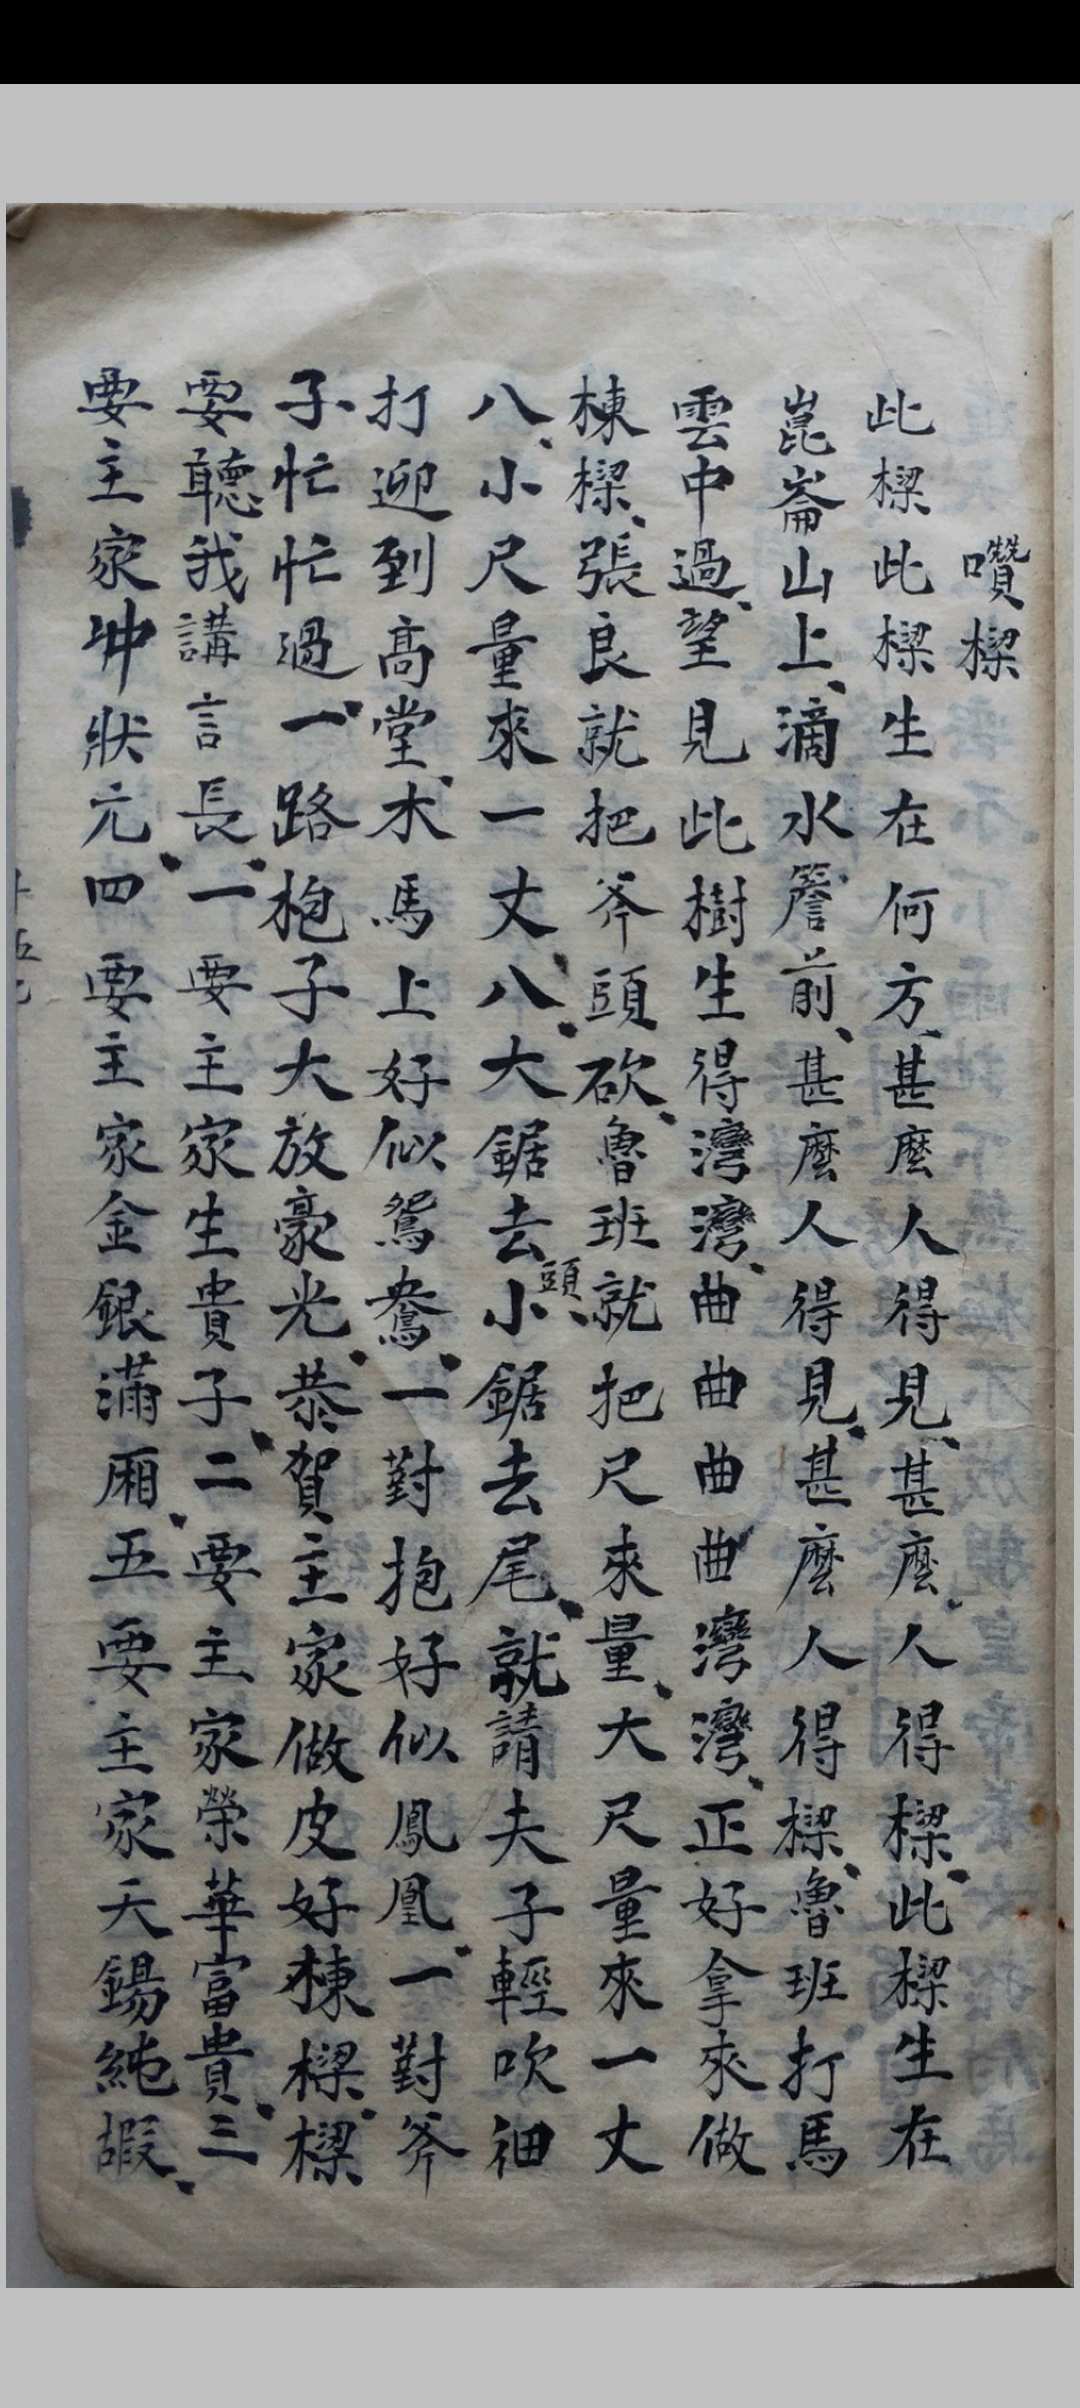 囋樑
此樑此樑生在何方、甚麼人得見、甚麼人得樑、此樑生在
崑崙山上、滴水簷前、甚麼人得見、甚麼人得樑、魯班打馬
雲中過、望見此樹生得灣灣、曲曲曲曲灣灣、正好拿來做
棟樑、張良就把斧頭砍、魯班就把尺來量、大尺量來一丈
八、小尺量來一丈八、大鋸去頭、小鋸去尾、就請夫子輕吹細
打迎到高堂、木馬上好似鴛鴦、一對抱好似鳳凰、一對斧
子忙忙過、一路枹子大放豪光、恭賀主家做皮好棟樑、樑
要聽我講言長、一要主家生貴子、二要主家榮華富貴、三
要主家中狀元、四要主家金銀滿厢、五要主家天錫純嘏、